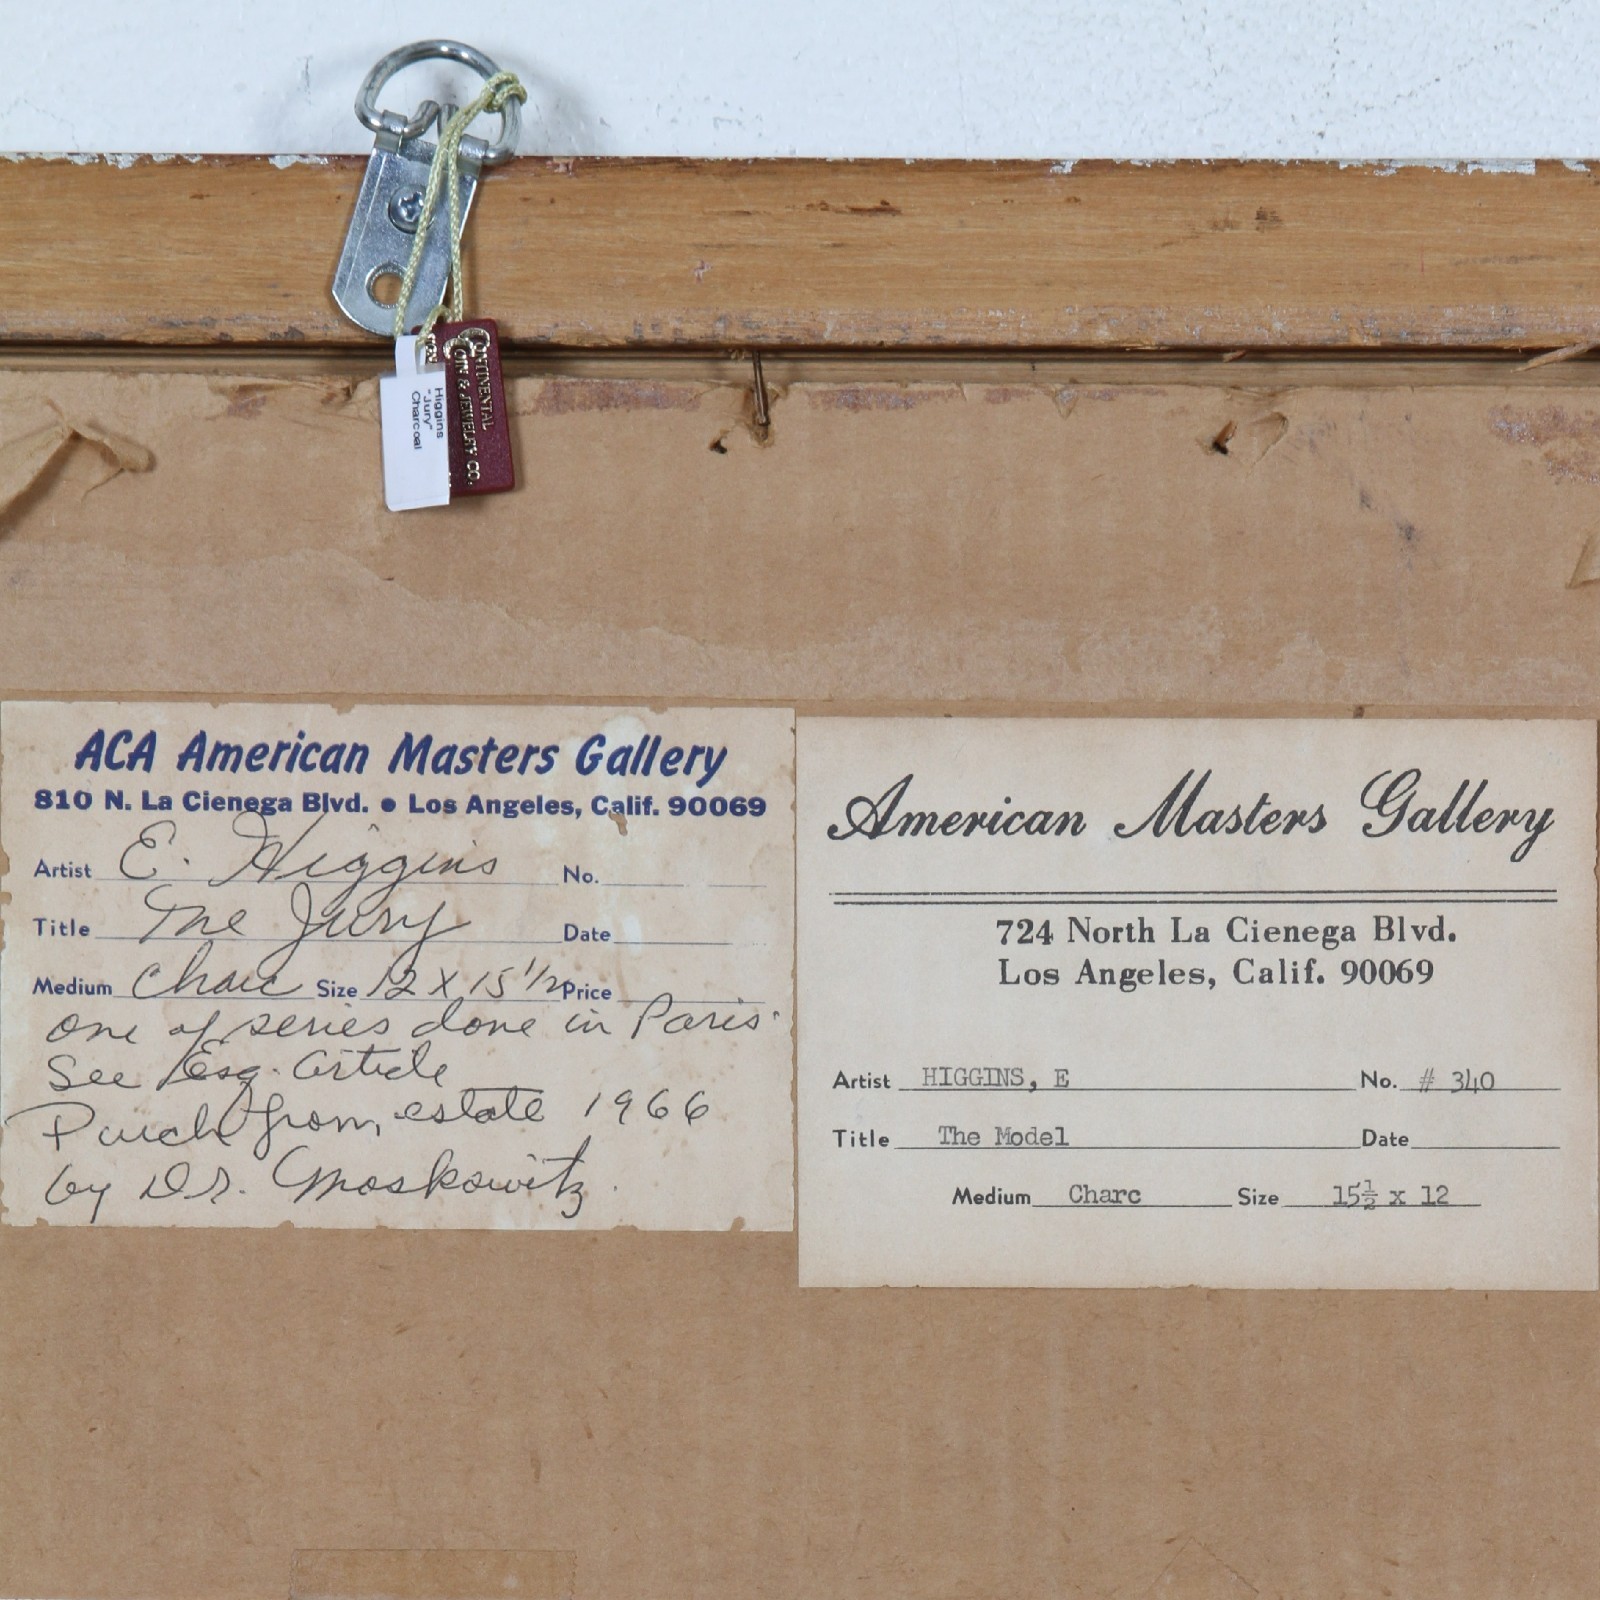 CONTINENTAL
COIN & JEWELRY CO.
Higgins
"Jury"
Charcoal
ACA American Masters Gallery
810 N. La Cienega Blvd. • Los Angeles, Calif. 90069
Artist E. Higgins No.
Title The Jury Date
Medium Charc Size 12 X 15 1/2 Price
one of series done in Paris.
See Esq. article
Purch from, estate 1966
by Dr. Moskowitz.
American Masters Gallery
724 North La Cienega Blvd.
Los Angeles, Calif. 90069
Artist HIGGINS, E No. # 340
Title The Model Date
Medium Charc Size 15½ x 12